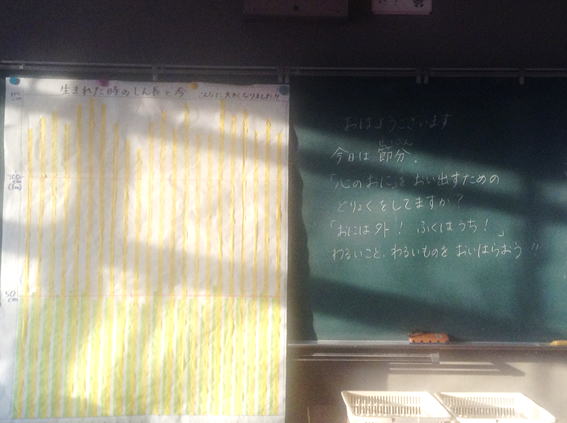 生まれた時のしん長と今 こんなに大きくなりました!!
100
cm
50
cm
おはようございます
今日は節分。
せつぶん
「心のおに」をおい出すための
どりょくをしてますか?
「おには外! ふくはうち!」
わるいこと、わるいものをおいはらおう!!